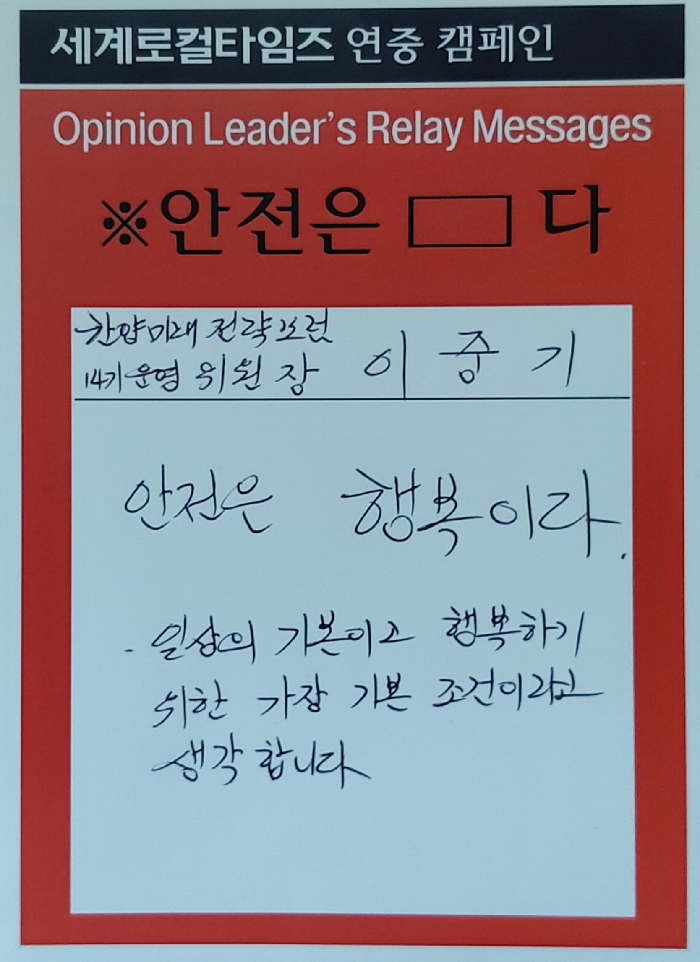 세계로컬타임즈 연중 캠페인
Opinion Leader's Relay Messages
※안전은 □ 다
한양미래 전략포럼
14기운영 위원장 이중기
안전은 행복이라.
- 일상의 기본이고 행복하기
위한 가장 기본 조건이라고
생각합니다